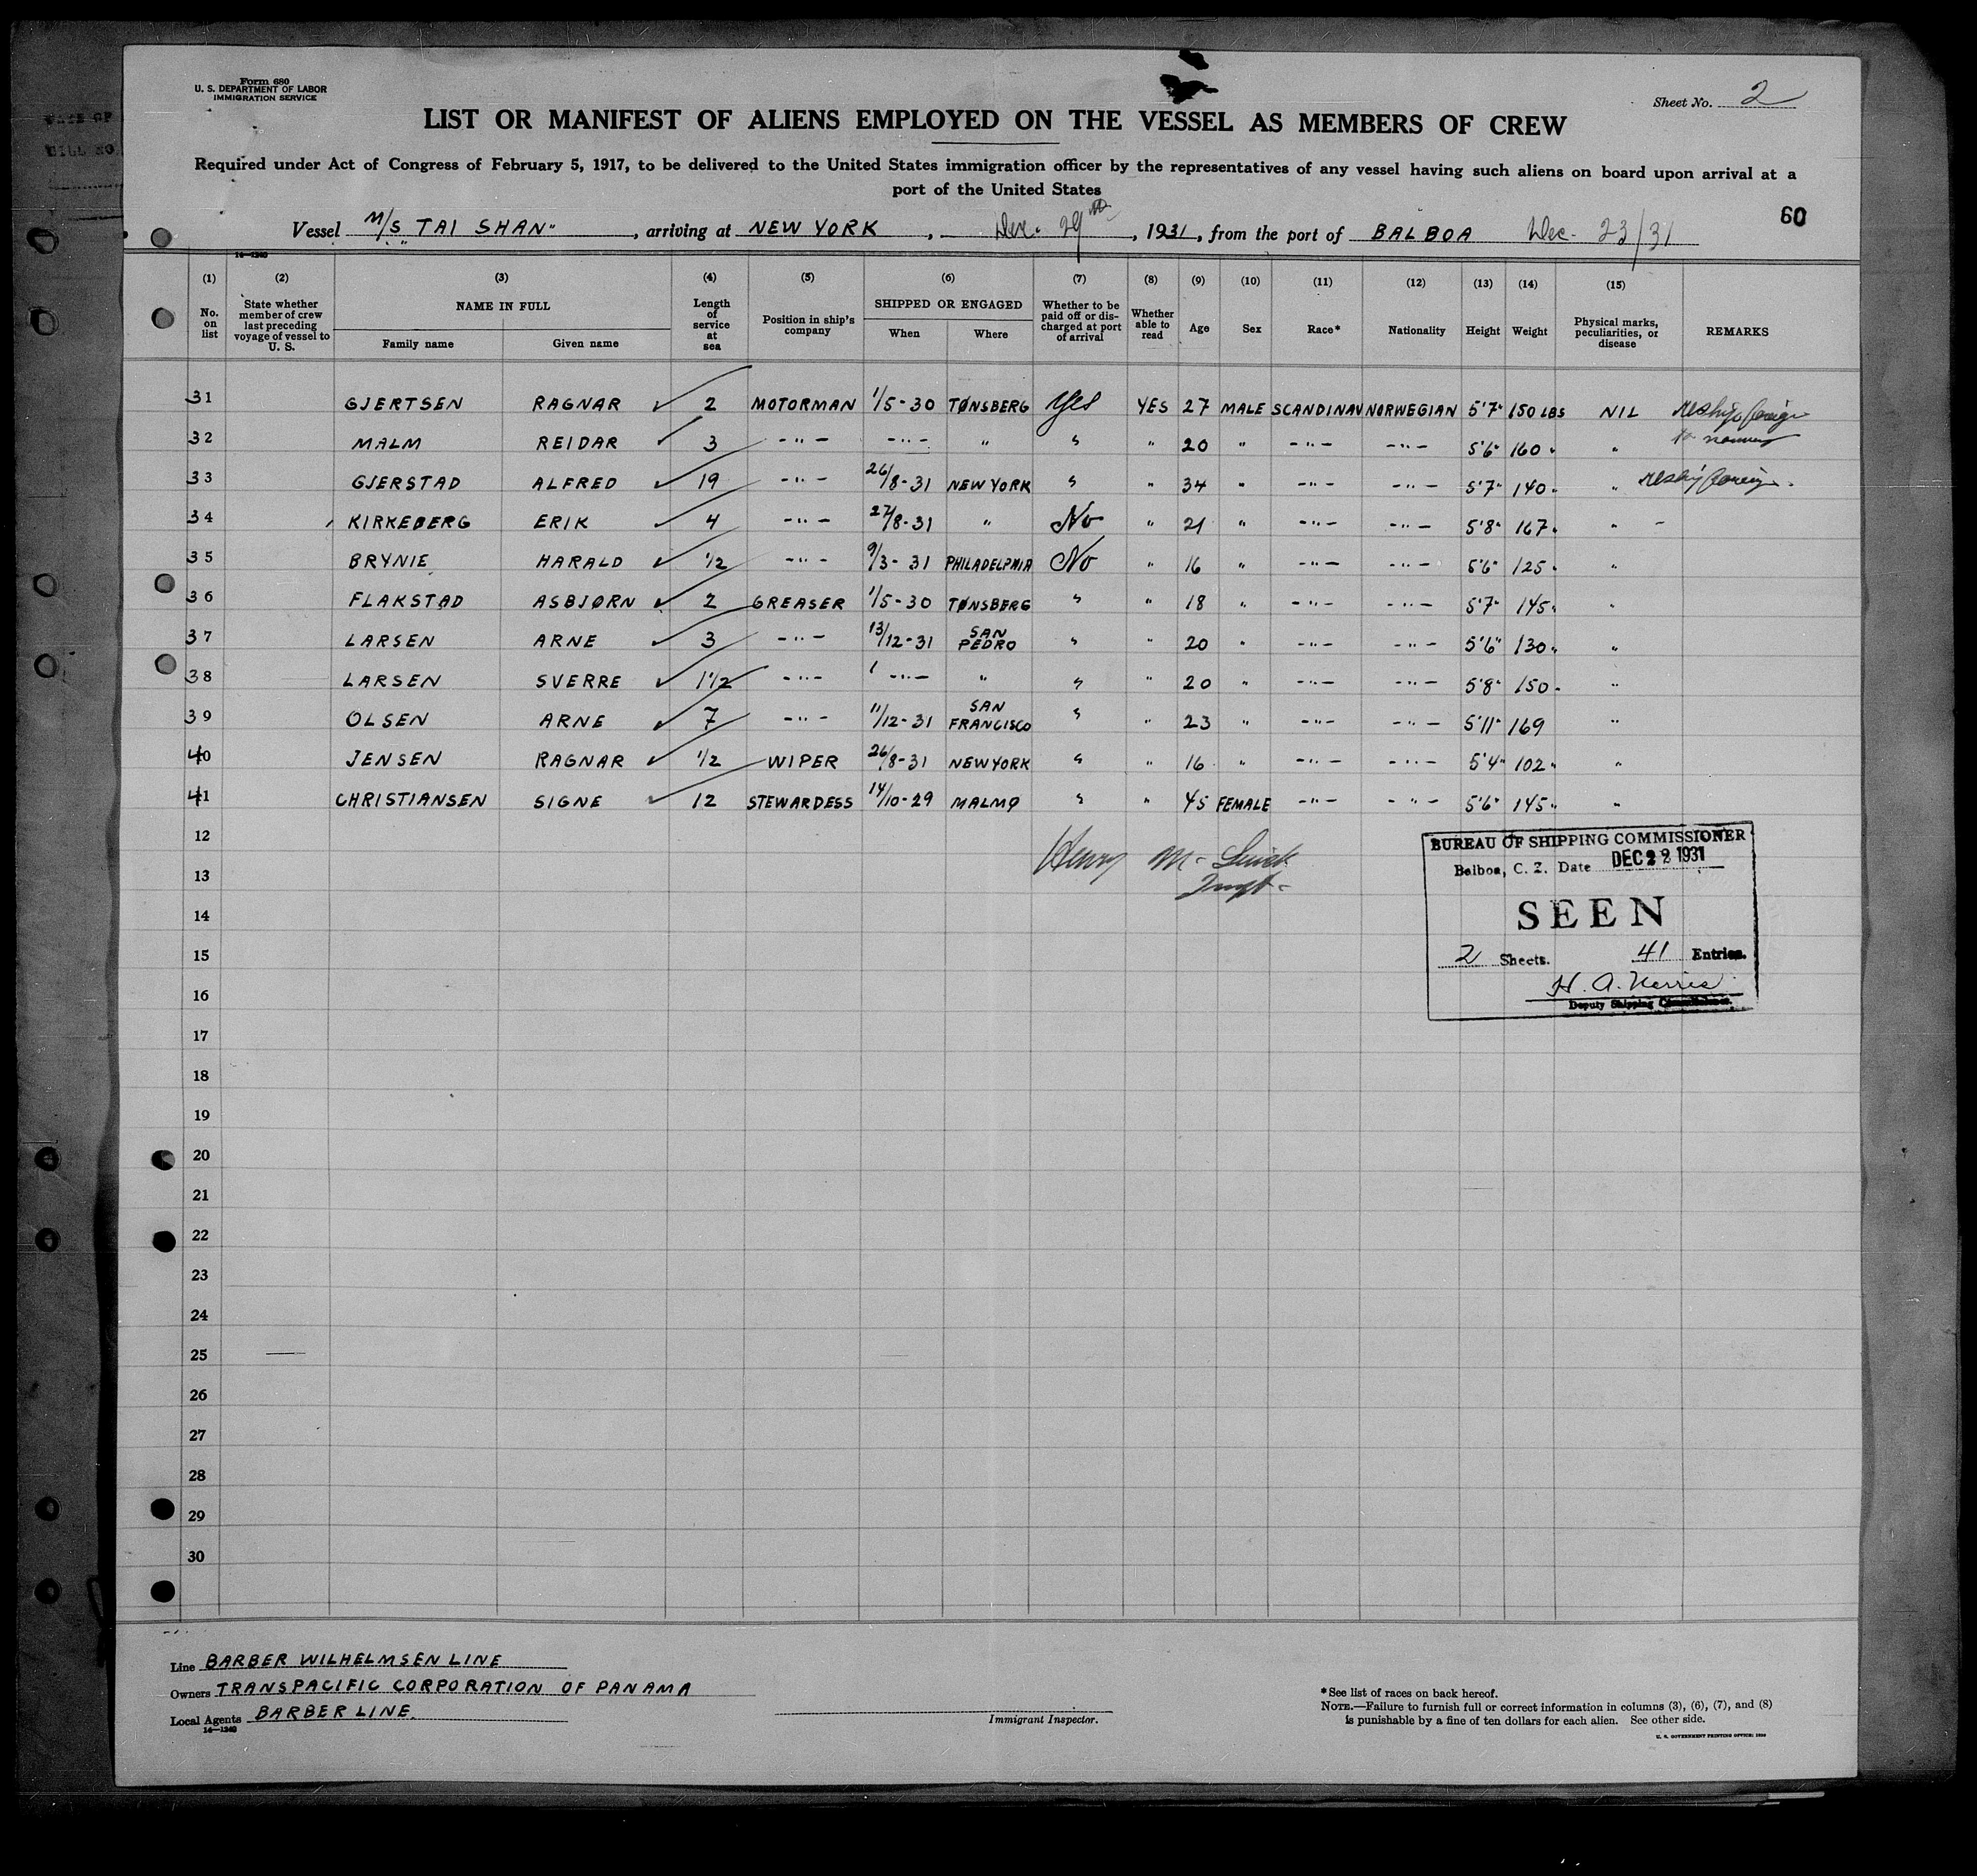 Form 680
U. S. DEPARTMENT OF LABOR
IMMIGRATION SERVICE
Sheet No. 2
LIST OR MANIFEST OF ALIENS EMPLOYED ON THE VESSEL AS MEMBERS OF CREW
Required under Act of Congress of February 5, 1917, to be delivered to the United States immigration officer by the representatives of any vessel having such aliens on board upon arrival at a
port of the United States
60
Vessel M/S "TAI SHAN", arriving at NEW YORK, Dec. 29th, 1931, from the port of BALBOA Dec. 23/31
14—1240
(1) No. on list
(2) State whether member of crew last preceding voyage of vessel to U. S.
(3) NAME IN FULL Family name Given name
(4) Length of service at sea
(5) Position in ship's company
(6) SHIPPED OR ENGAGED When Where
(7) Whether to be paid off or discharged at port of arrival
(8) Whether able to read
(9) Age
(10) Sex
(11) Race*
(12) Nationality
(13) Height
(14) Weight
(15) Physical marks, peculiarities, or disease
REMARKS
31 GJERTSEN RAGNAR ✓ 2 MOTORMAN 1/5-30 TØNSBERG Yes YES 27 MALE SCANDINAV NORWEGIAN 5'7" 150 LBS NIL reship foreign
32 MALM REIDAR ✓ 3 -"- -"- " " " 20 " -"- -"- 5'6" 160 " "
33 GJERSTAD ALFRED ✓ 19 -"- 26/8-31 NEW YORK " " 34 " -"- -"- 5'7" 140 " " reship foreign.
34 KIRKEBERG ERIK ✓ 4 -"- 27/8-31 " No " 21 " -"- -"- 5'8" 167 " " -
35 BRYNIE HARALD ✓ 1/2 -"- 9/3-31 PHILADELPHIA No " 16 " -"- -"- 5'6" 125 " "
36 FLAKSTAD ASBJØRN ✓ 2 GREASER 1/5-30 TØNSBERG " " 18 " -"- -"- 5'7" 145 " "
37 LARSEN ARNE ✓ 3 -"- 13/12-31 SAN PEDRO " " 20 " -"- -"- 5'6" 130 " "
38 LARSEN SVERRE ✓ 1 1/2 -"- -"- " " " 20 " -"- -"- 5'8" 150 " "
39 OLSEN ARNE ✓ 7 -"- 11/12-31 SAN FRANCISCO " " 23 " -"- -"- 5'11" 169 "
40 JENSEN RAGNAR ✓ 1/2 WIPER 26/8-31 NEW YORK " " 16 " -"- -"- 5'4" 102 " "
41 CHRISTIANSEN SIGNE ✓ 12 STEWARDESS 14/10-29 MALMØ " " 45 FEMALE -"- -"- 5'6" 145 " "
12
Henry M.
13
14
15
16
17
18
19
20
21
22
23
24
25
26
27
28
29
30
BUREAU OF SHIPPING COMMISSIONER
Balboa, C. Z. Date DEC 22 1931
SEEN
2 Sheets. 41 Entries.
H. A.
Deputy Shipping Commissioner.
Line BARBER WILHELMSEN LINE
Owners TRANSPACIFIC CORPORATION OF PANAMA
Local Agents BARBER LINE.
14—1240
Immigrant Inspector.
*See list of races on back hereof.
NOTE.—Failure to furnish full or correct information in columns (3), (6), (7), and (8)
is punishable by a fine of ten dollars for each alien. See other side.